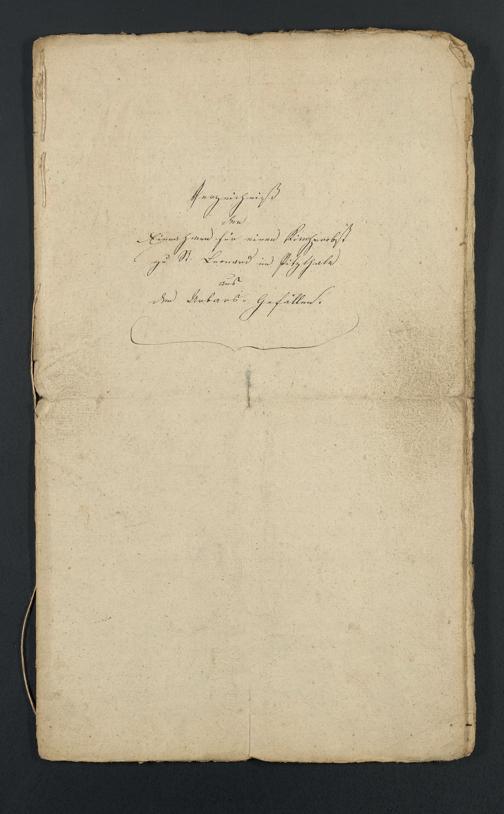 Verzeichniß
der
Einnahmen für einen Kirchprobst
zu St. Leonard im Pitzthale
aus
den Urbars-Gefällen.